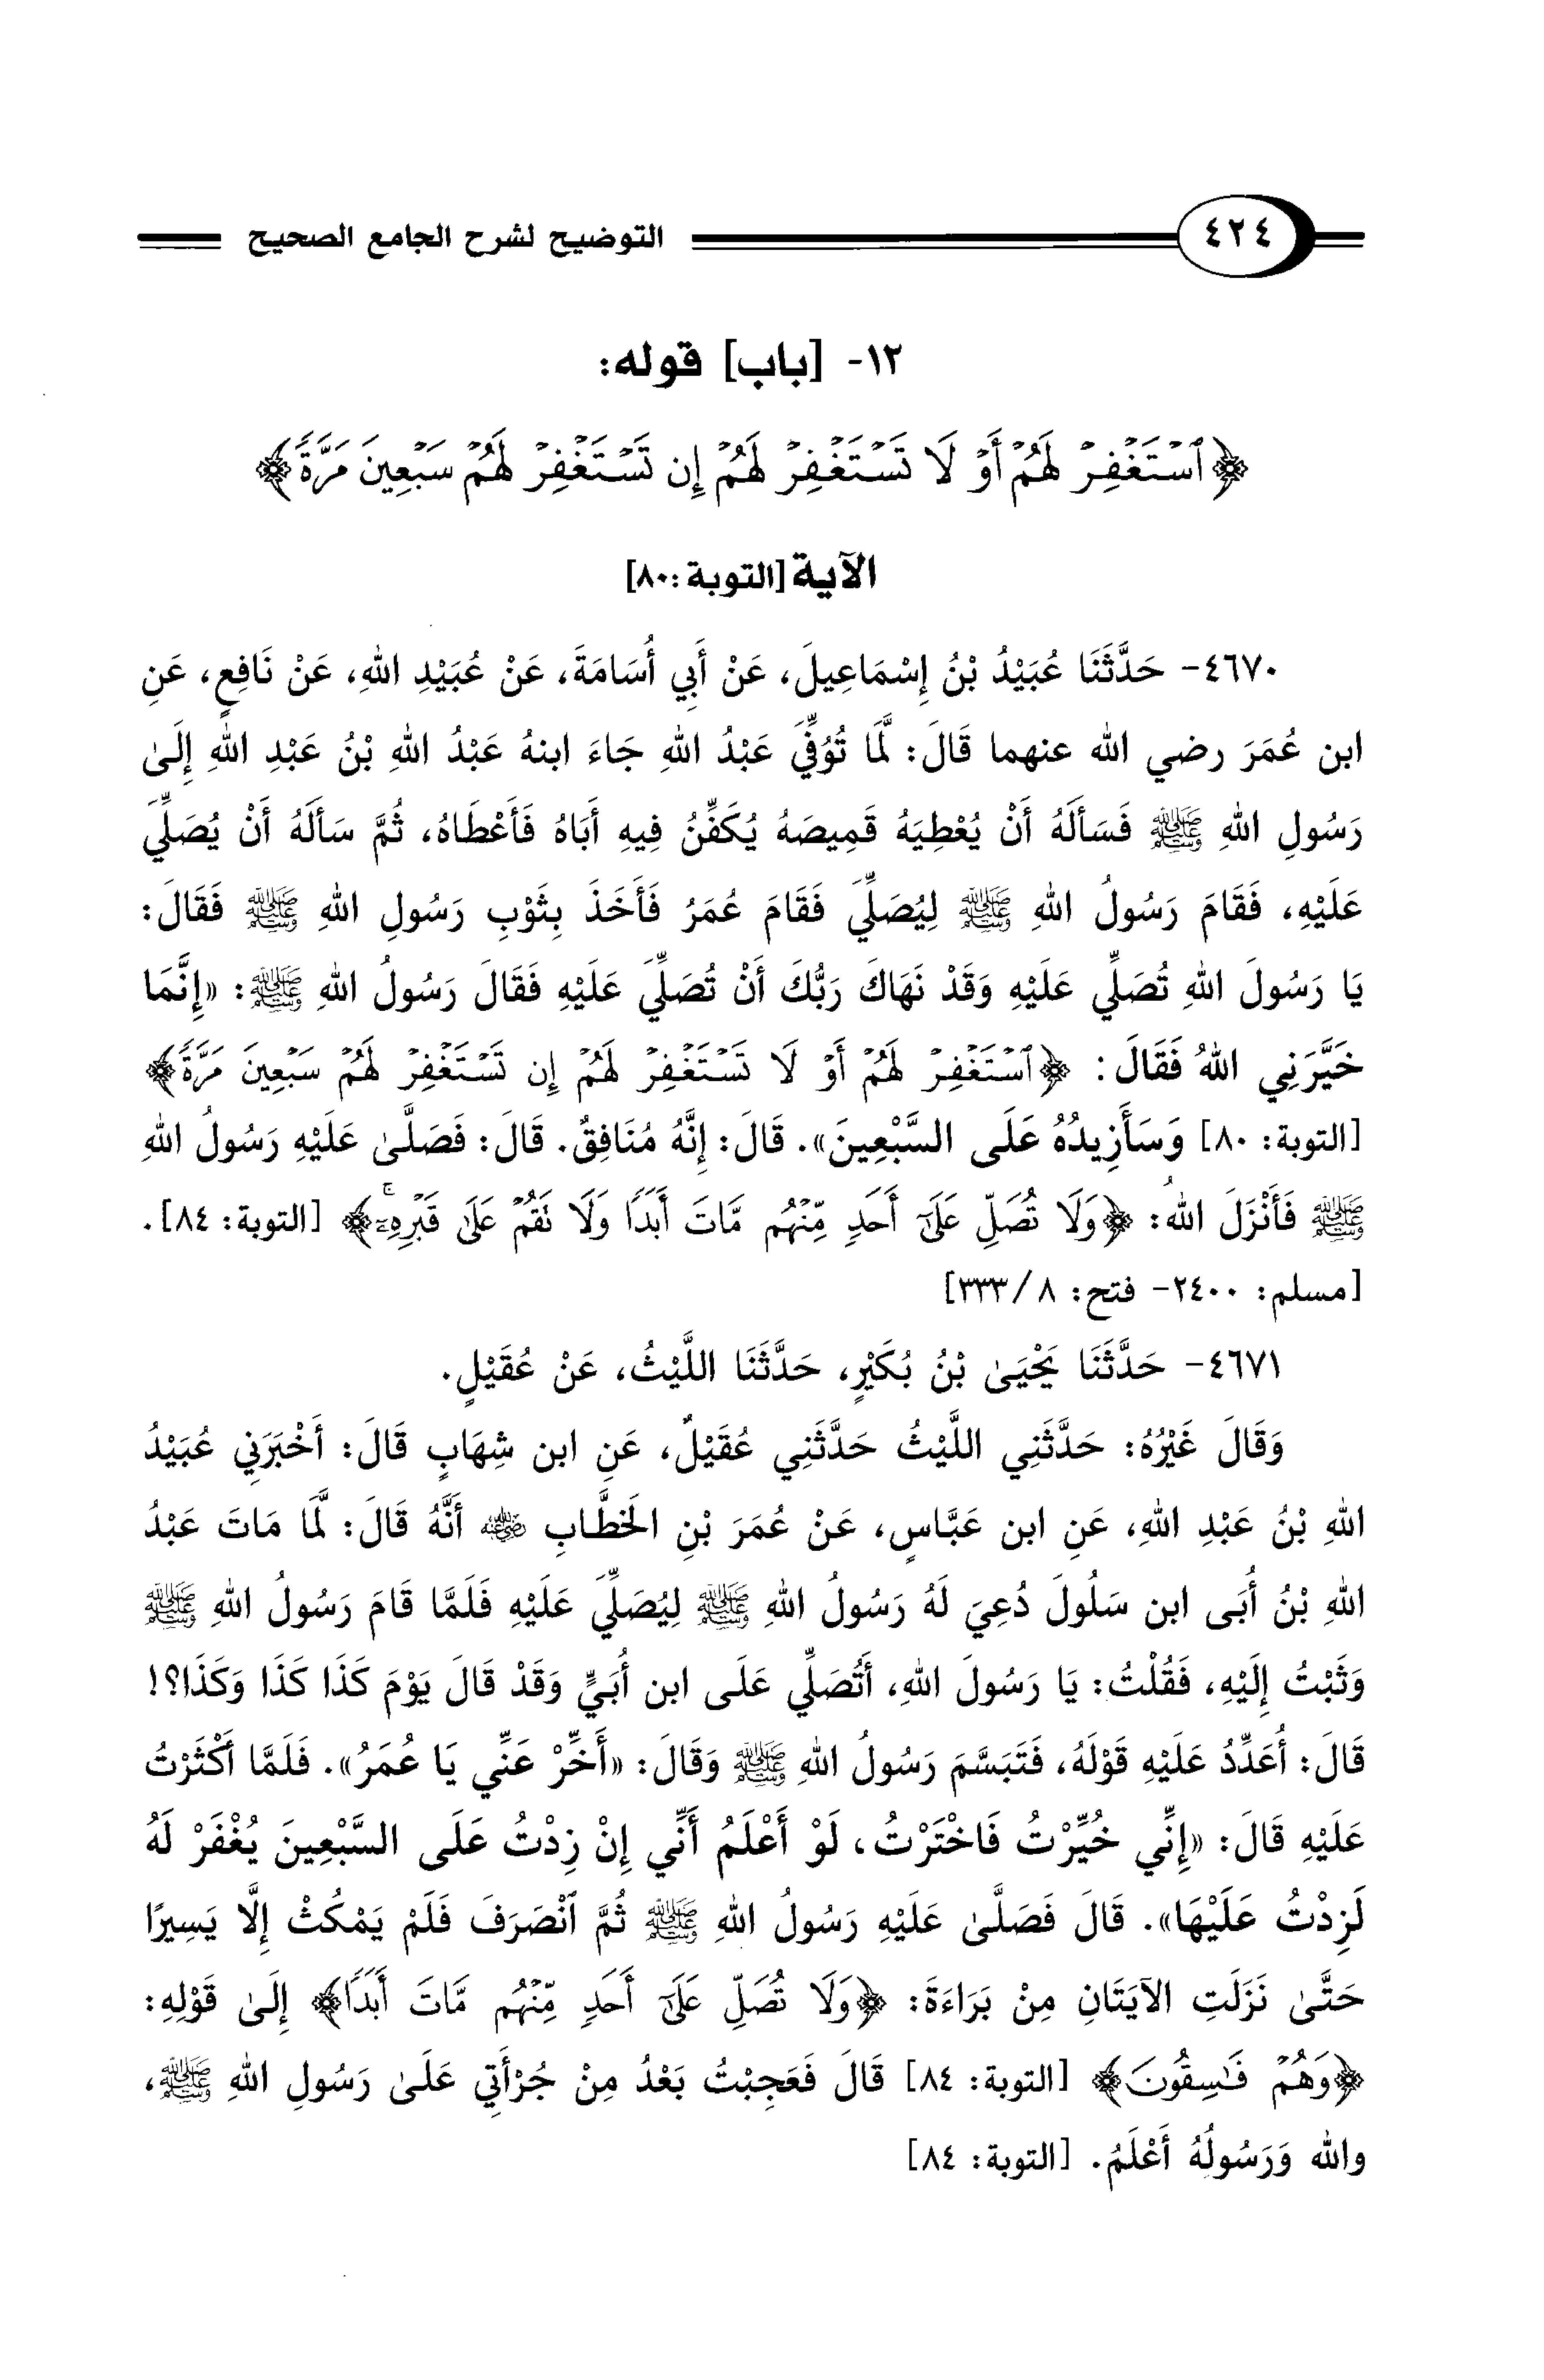 ٤٢٤ التوضيح لشرح الجامع الصحيح
١٢- [باب] قوله:
﴿ٱسْتَغْفِرْ لَهُمْ أَوْ لَا تَسْتَغْفِرْ لَهُمْ إِن تَسْتَغْفِرْ لَهُمْ سَبْعِينَ مَرَّةً﴾
الآية [التوبة:٨٠]
٤٦٧٠- حَدَّثَنَا عُبَيْدُ بْنُ إِسْمَاعِيلَ، عَنْ أَبِي أُسَامَةَ، عَنْ عُبَيْدِ اللهِ، عَنْ نَافِعٍ، عَنِ
ابن عُمَرَ رضي الله عنهما قَالَ: لَمَّا تُوُفِّيَ عَبْدُ اللهِ جَاءَ ابنهُ عَبْدُ اللهِ بْنُ عَبْدِ اللهِ إِلَىٰ
رَسُولِ اللهِ ﷺ فَسَأَلَهُ أَنْ يُعْطِيَهُ قَمِيصَهُ يُكَفِّنُ فِيهِ أَبَاهُ فَأَعْطَاهُ، ثُمَّ سَأَلَهُ أَنْ يُصَلِّيَ
عَلَيْهِ، فَقَامَ رَسُولُ اللهِ ﷺ لِيُصَلِّيَ فَقَامَ عُمَرُ فَأَخَذَ بِثَوْبِ رَسُولِ اللهِ ﷺ فَقَالَ:
يَا رَسُولَ اللهِ تُصَلِّي عَلَيْهِ وَقَدْ نَهَاكَ رَبُّكَ أَنْ تُصَلِّيَ عَلَيْهِ فَقَالَ رَسُولُ اللهِ ﷺ: «إِنَّمَا
خَيَّرَنِي اللهُ فَقَالَ: ﴿ٱسْتَغْفِرْ لَهُمْ أَوْ لَا تَسْتَغْفِرْ لَهُمْ إِن تَسْتَغْفِرْ لَهُمْ سَبْعِينَ مَرَّةً﴾
[التوبة: ٨٠] وَسَأَزِيدُهُ عَلَى السَّبْعِينَ». قَالَ: إِنَّهُ مُنَافِقٌ. قَالَ: فَصَلَّىٰ عَلَيْهِ رَسُولُ اللهِ
ﷺ فَأَنْزَلَ اللهُ: ﴿وَلَا تُصَلِّ عَلَىٰٓ أَحَدٍ مِّنْهُم مَّاتَ أَبَدًا وَلَا نَقُمْ عَلَىٰ قَبْرِهِۦٓۚ﴾ [التوبة: ٨٤].
[مسلم: ٢٤٠٠- فتح: ٨/ ٣٣٣]
٤٦٧١- حَدَّثَنَا يَحْيَىٰ بْنُ بُكَيْرٍ، حَدَّثَنَا اللَّيْثُ، عَنْ عُقَيْلٍ.
وَقَالَ غَيْرُهُ: حَدَّثَنِي اللَّيْثُ حَدَّثَنِي عُقَيْلٌ، عَنِ ابن شِهَابٍ قَالَ: أَخْبَرَنِي عُبَيْدُ
اللهِ بْنُ عَبْدِ اللهِ، عَنِ ابن عَبَّاسٍ، عَنْ عُمَرَ بْنِ الخَطَّابِ ﵁ أَنَّهُ قَالَ: لَمَّا مَاتَ عَبْدُ
اللهِ بْنُ أُبَى ابن سَلُولَ دُعِيَ لَهُ رَسُولُ اللهِ ﷺ لِيُصَلِّيَ عَلَيْهِ فَلَمَّا قَامَ رَسُولُ اللهِ ﷺ
وَثَبْتُ إِلَيْهِ، فَقُلْتُ: يَا رَسُولَ اللهِ، أَتُصَلِّي عَلَى ابن أُبَيٍّ وَقَدْ قَالَ يَوْمَ كَذَا كَذَا وَكَذَا؟!
قَالَ: أُعَدِّدُ عَلَيْهِ قَوْلَهُ، فَتَبَسَّمَ رَسُولُ اللهِ ﷺ وَقَالَ: «أَخِّرْ عَنِّي يَا عُمَرُ». فَلَمَّا أَكْثَرْتُ
عَلَيْهِ قَالَ: «إِنِّي خُيِّرْتُ فَاخْتَرْتُ، لَوْ أَعْلَمُ أَنِّي إِنْ زِدْتُ عَلَى السَّبْعِينَ يُغْفَرْ لَهُ
لَزِدْتُ عَلَيْهَا». قَالَ فَصَلَّىٰ عَلَيْهِ رَسُولُ اللهِ ﷺ ثُمَّ ٱنْصَرَفَ فَلَمْ يَمْكُثْ إِلَّا يَسِيرًا
حَتَّىٰ نَزَلَتِ الآيَتَانِ مِنْ بَرَاءَةَ: ﴿وَلَا تُصَلِّ عَلَىٰٓ أَحَدٍ مِّنْهُم مَّاتَ أَبَدًا﴾ إِلَىٰ قَوْلِهِ:
﴿وَهُمْ فَٰسِقُونَ﴾ [التوبة: ٨٤] قَالَ فَعَجِبْتُ بَعْدُ مِنْ جُرْأَتِي عَلَىٰ رَسُولِ اللهِ ﷺ،
والله وَرَسُولُهُ أَعْلَمُ. [التوبة: ٨٤]